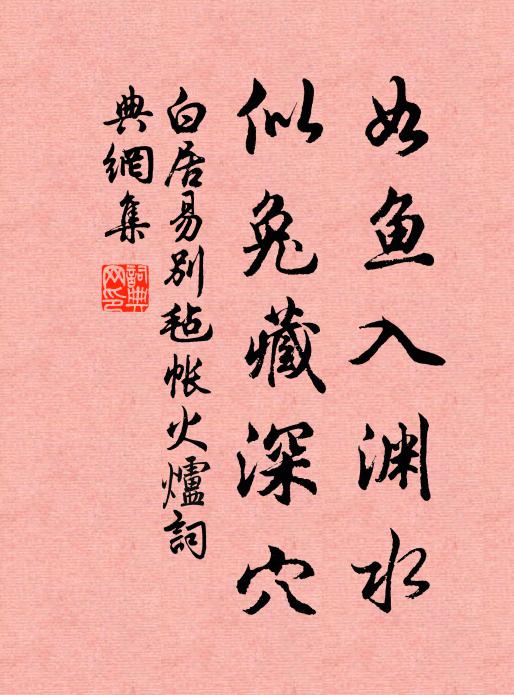 如鱼入渊水
似兔藏深穴
白居易别毡帐火爐詞
典網集
詞典網印